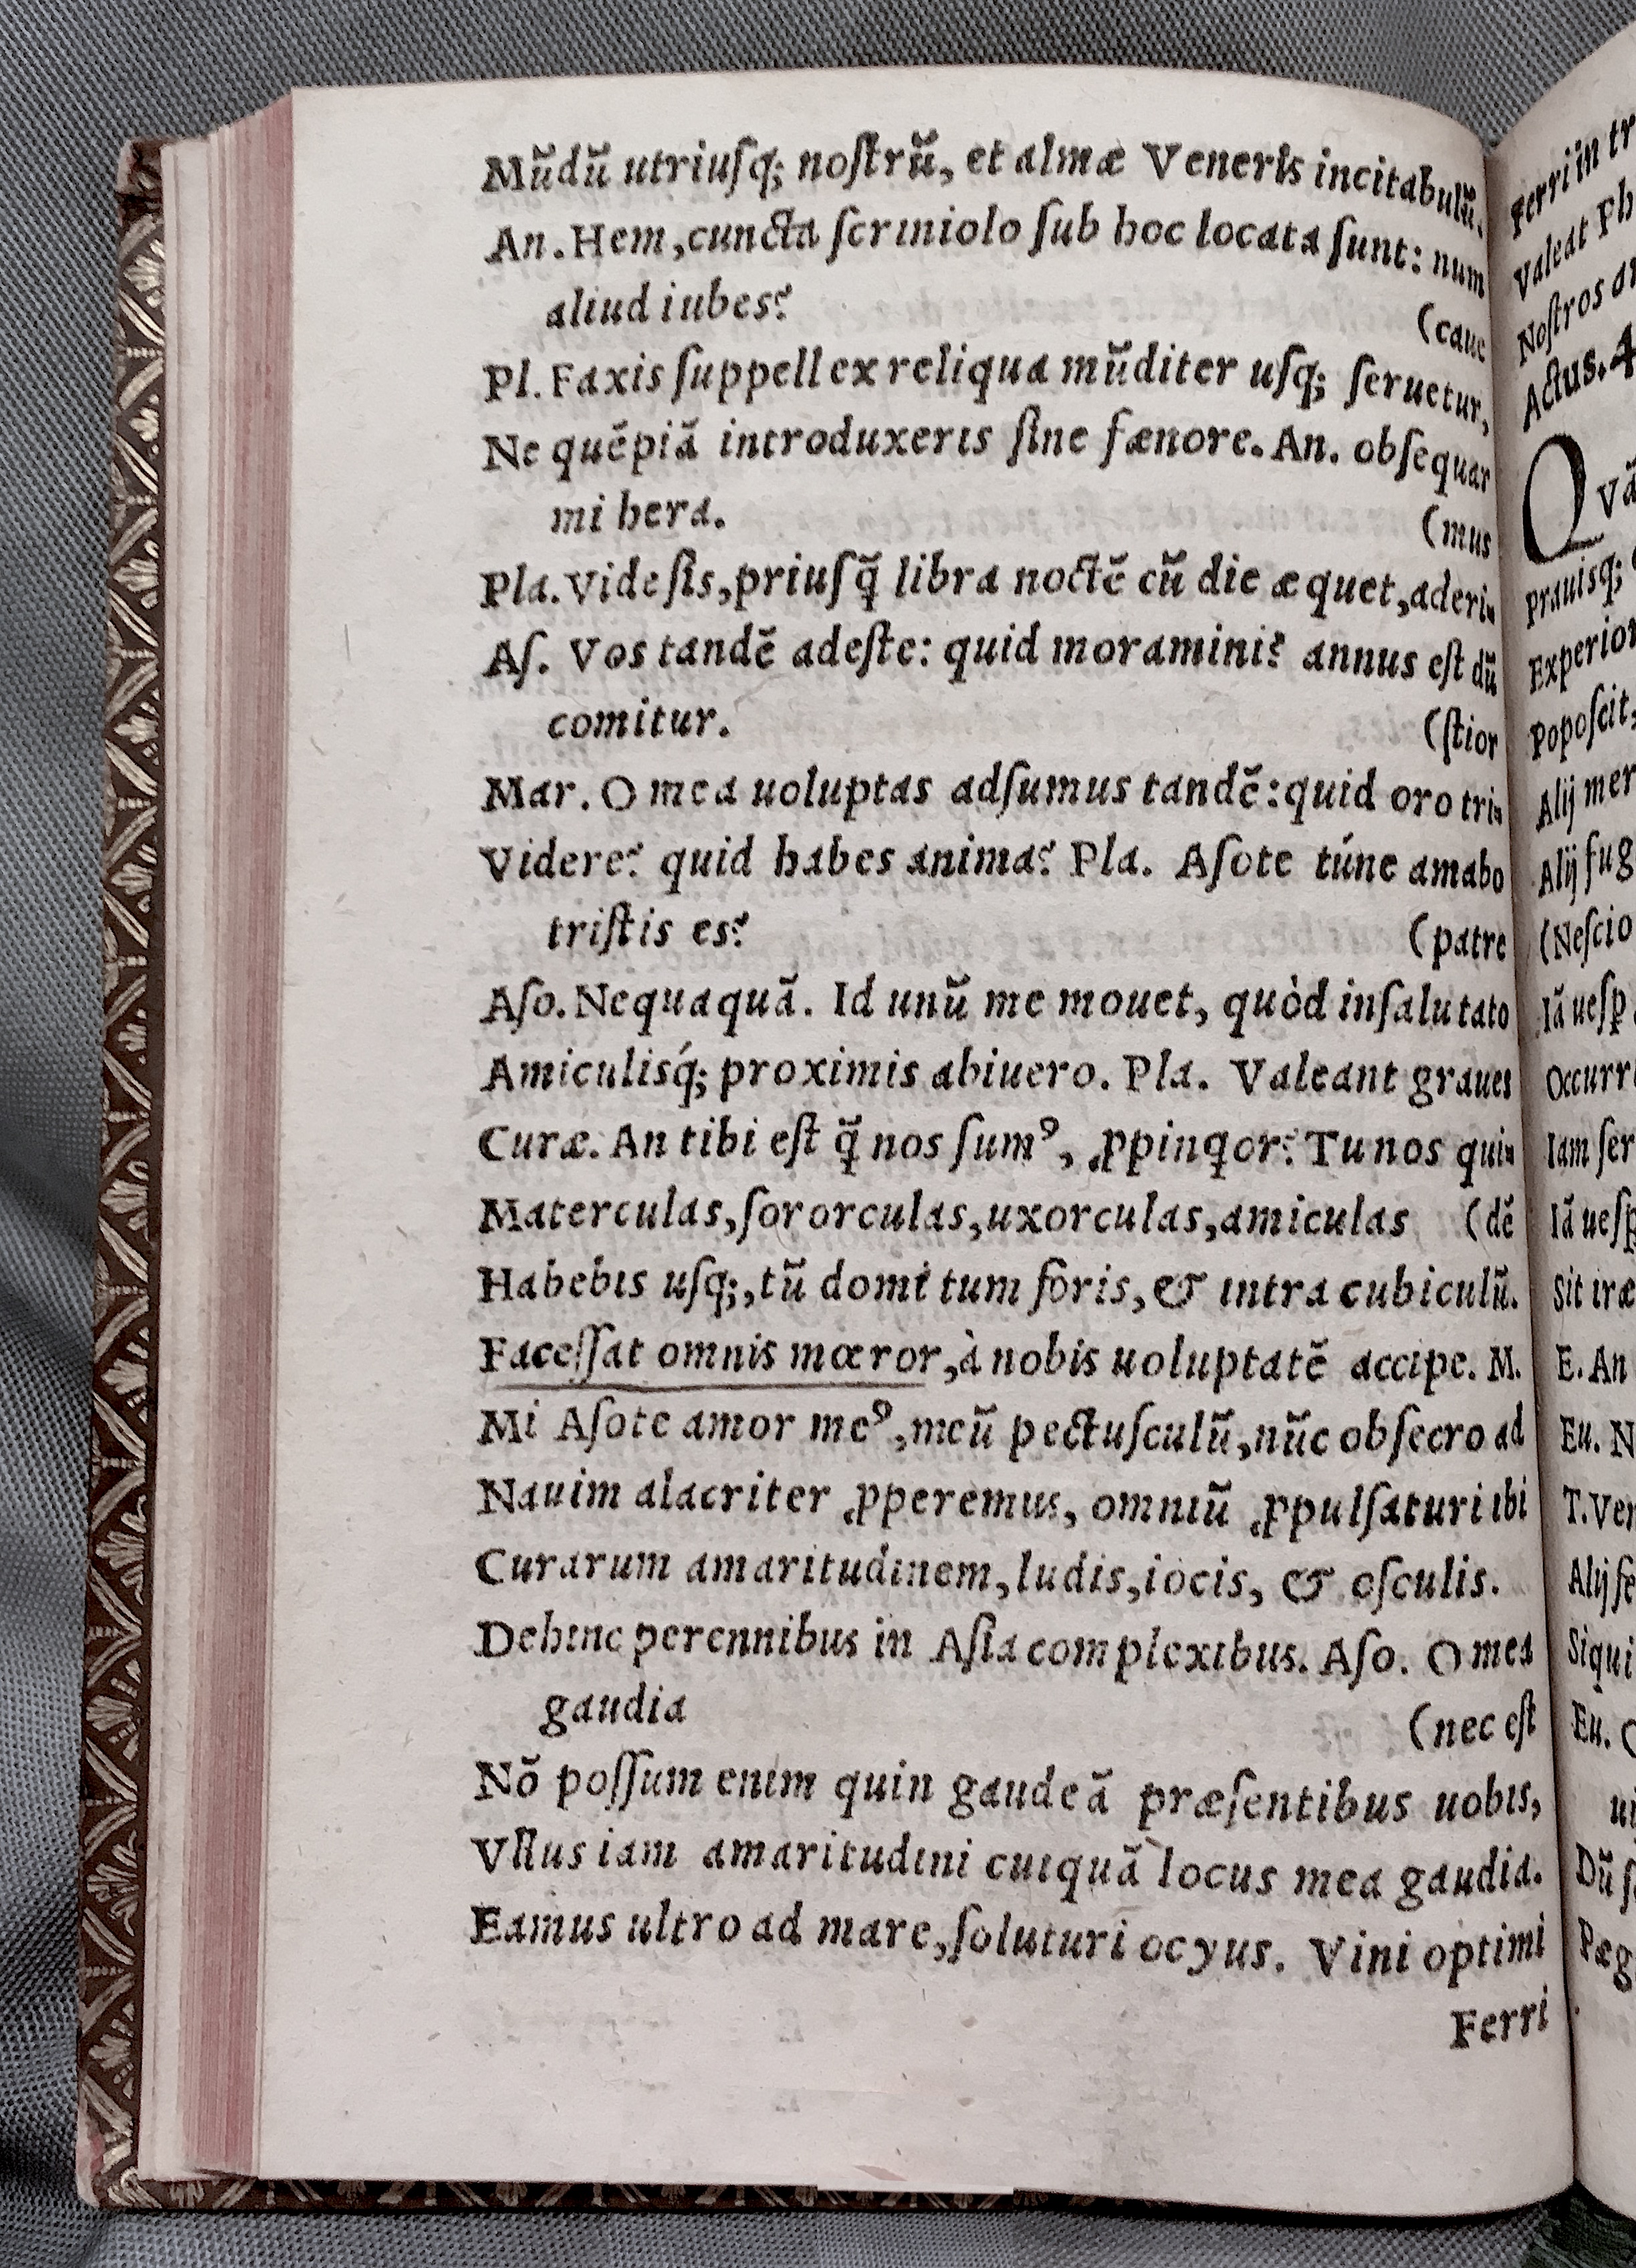 Mũdũ utriuſq; noſtrũ, et almæ Veneris incitabulũ.
An. Hem, cuncta ſcriniolo ſub hoc locata ſunt: num
aliud iubes? (caue
Pl. Faxis ſuppellex reliqua mũditer uſq; ſeruetur,
Ne quẽpiã introduxeris ſine fœnore. An. obſequar
mi hera. (mus
Pla. Videſis, priuſq̃ libra noctẽ cũ die æquet, aderi-
Aſ. Vos tandẽ adeſte: quid moramini? annus eſt dũ
comitur. (ſtior
Mar. O mea uoluptas adſumus tandẽ: quid oro tri-
Videre? quid habes anima? Pla. Aſote túne amabo
triſtis es? (patre
Aſo. Nequaquã. Id unũ me mouet, quòd inſalutato
Amiculisq́; proximis abiuero. Pla. Valeant graues
Curæ. An tibi eſt q̃ nos ſumꝰ, ꝓpinqor? Tu nos qui-
Materculas, ſororculas, uxorculas, amiculas (dẽ
Habebis uſq;, tũ domi tum foris, & intra cubiculũ.
Faceſſat omnis mœror, à nobis uoluptatẽ accipe. M.
Mi Aſote amor meꝰ, meũ pectuſculũ, nũc obſecro ad
Nauim alacriter ꝓperemus, omniũ ꝓpulſaturi ibi
Curarum amaritudinem, ludis, iocis, & oſculis.
Dehinc perennibus in Aſia complexibus. Aſo. O mea
gaudia (nec eſt
Nõ poſſum enim quin gaudeã præſentibus uobis,
Vllus iam amaritudini cuiquã locus mea gaudia.
Eamus ultro ad mare, ſoluturi ocyus. Vini optimi
Ferri
Ferri in
Valeat
Noſtros
Actus. 4
prauisq;
Experior
Popoſcit,
Alij
Alij
(Neſcio
Iã
Iam
Iã
Sit iræ
E. An
Eu.
Alij
Siqui
Eu.
Dũ